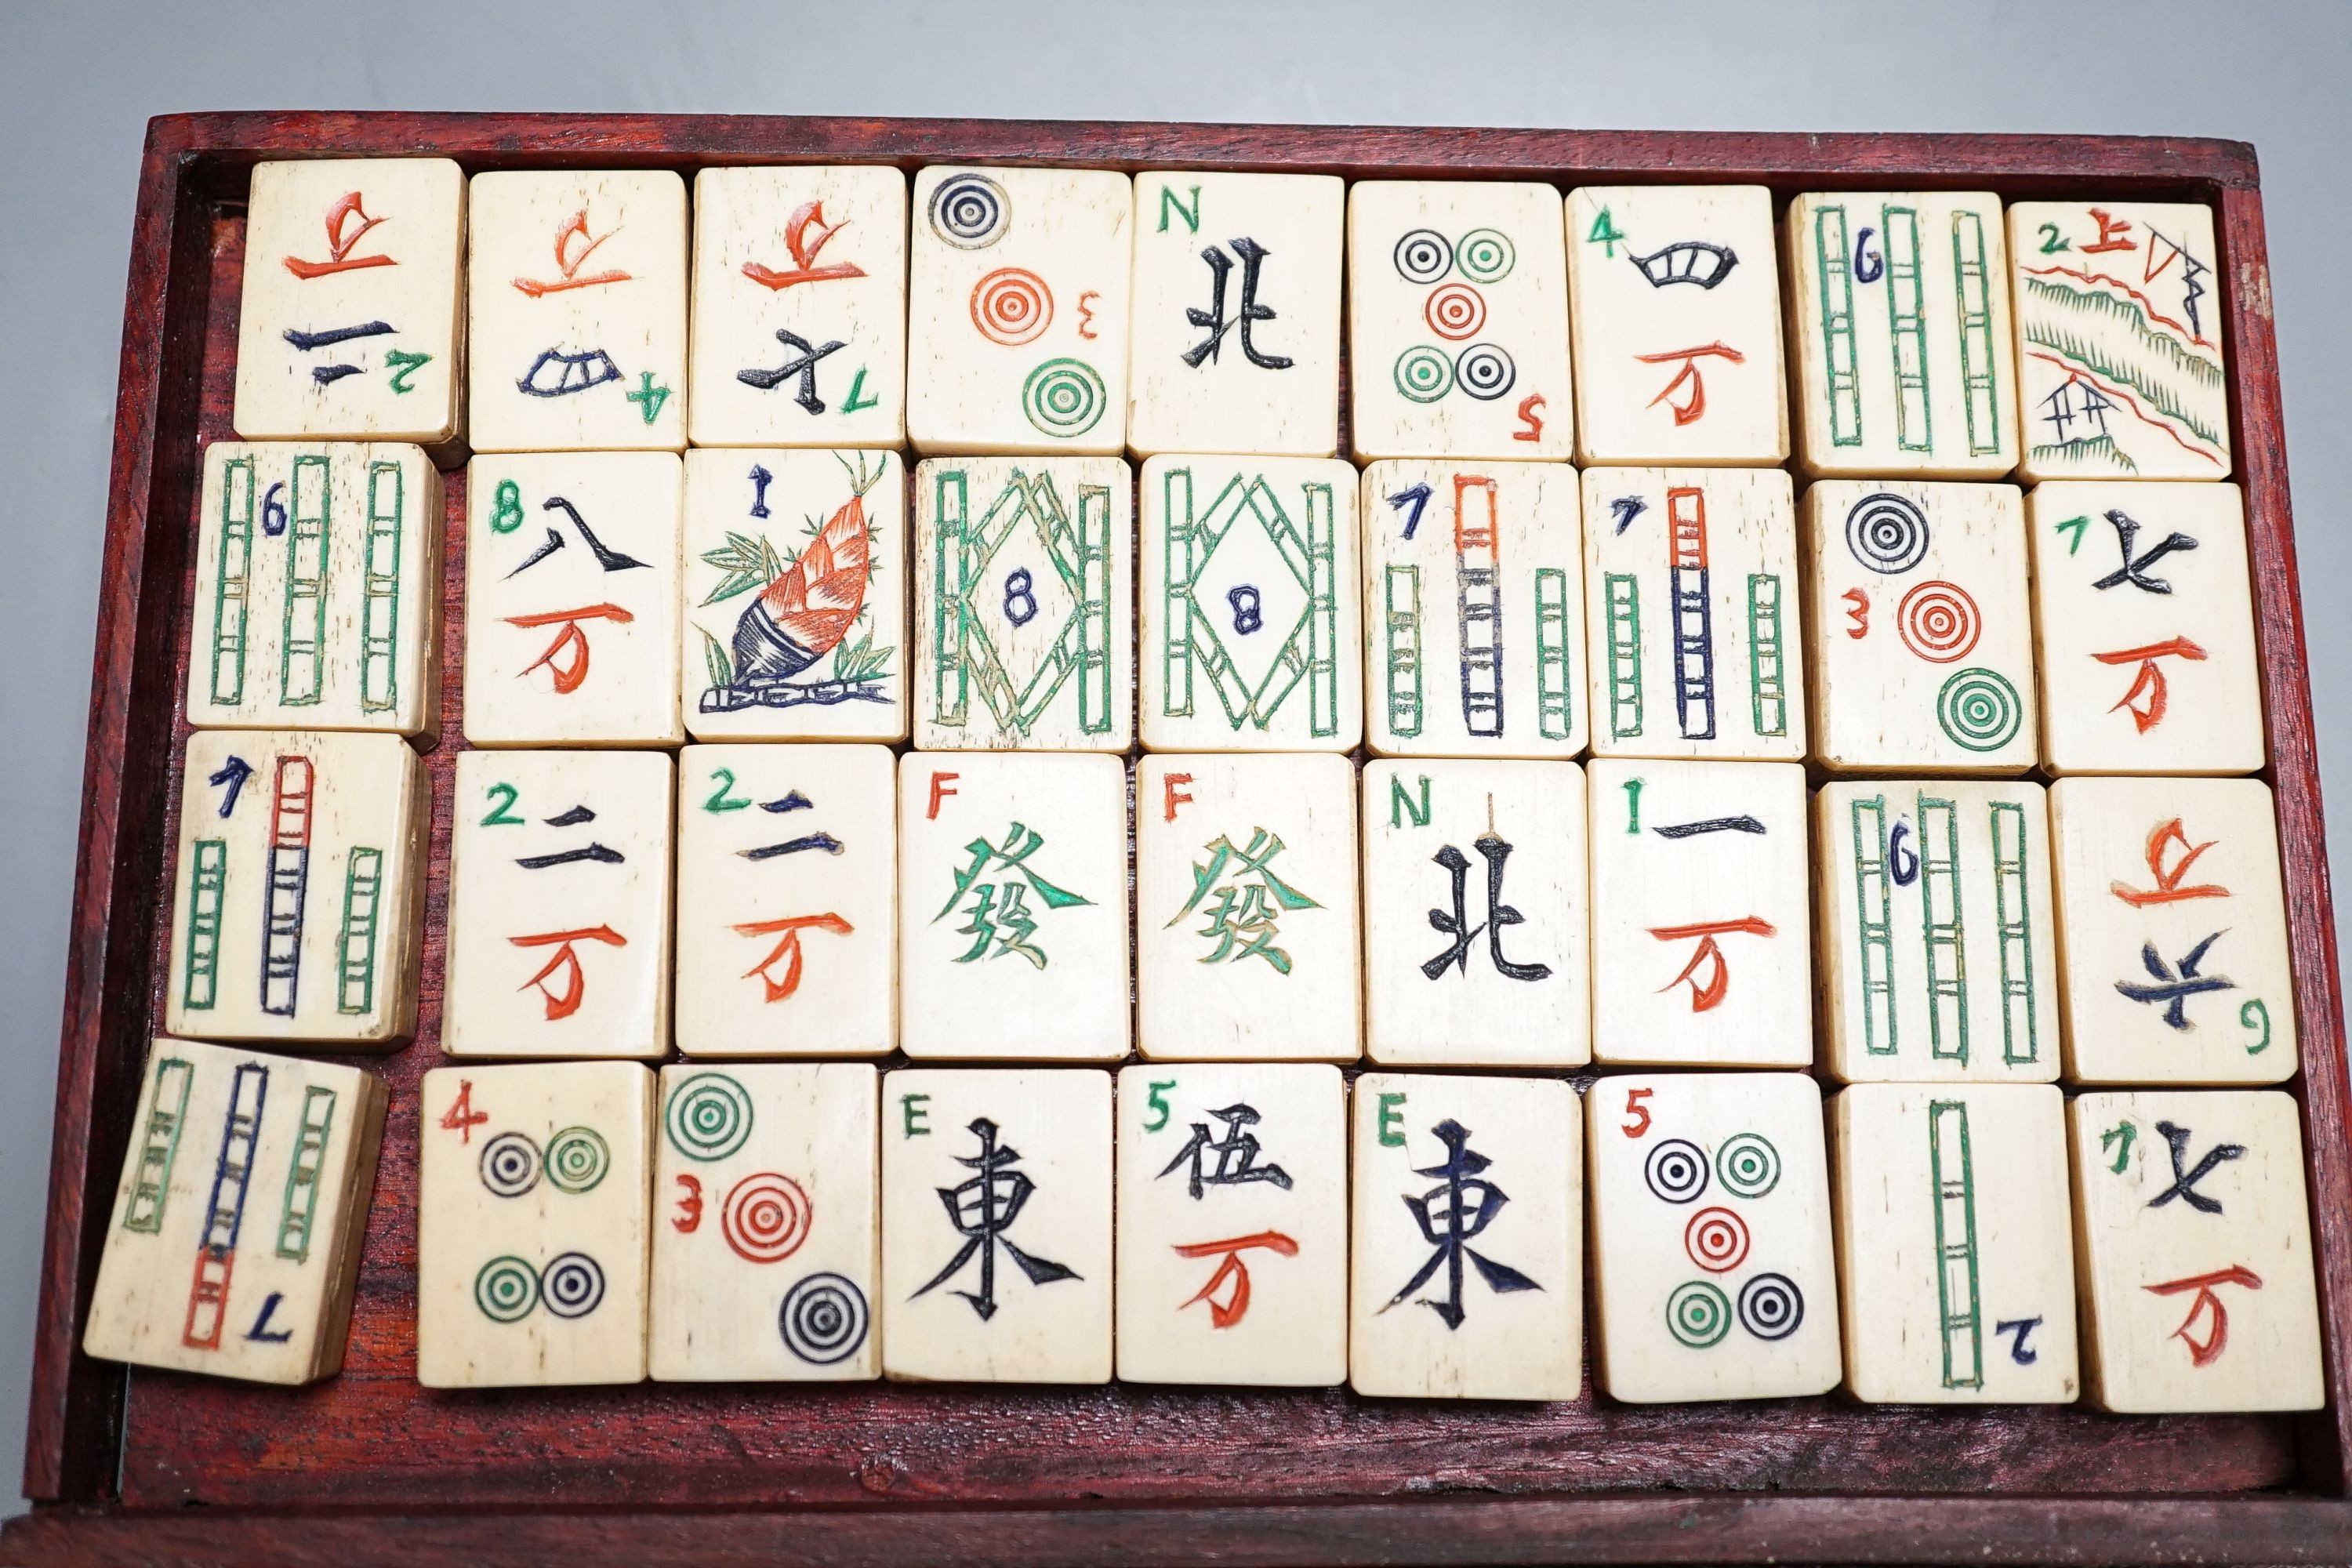 万
二 2
万
四 4
万
七 7
3
N
北
5
4 四
万
6
2 上
6
8 八
万
1
8
8
7
7
3
7 七
万
7
2 二
万
2 二
万
F
發
F
發
N
北
1 一
万
6
万
六 6
7
4
3
E
東
5 伍
万
E
東
5
2
7 七
万